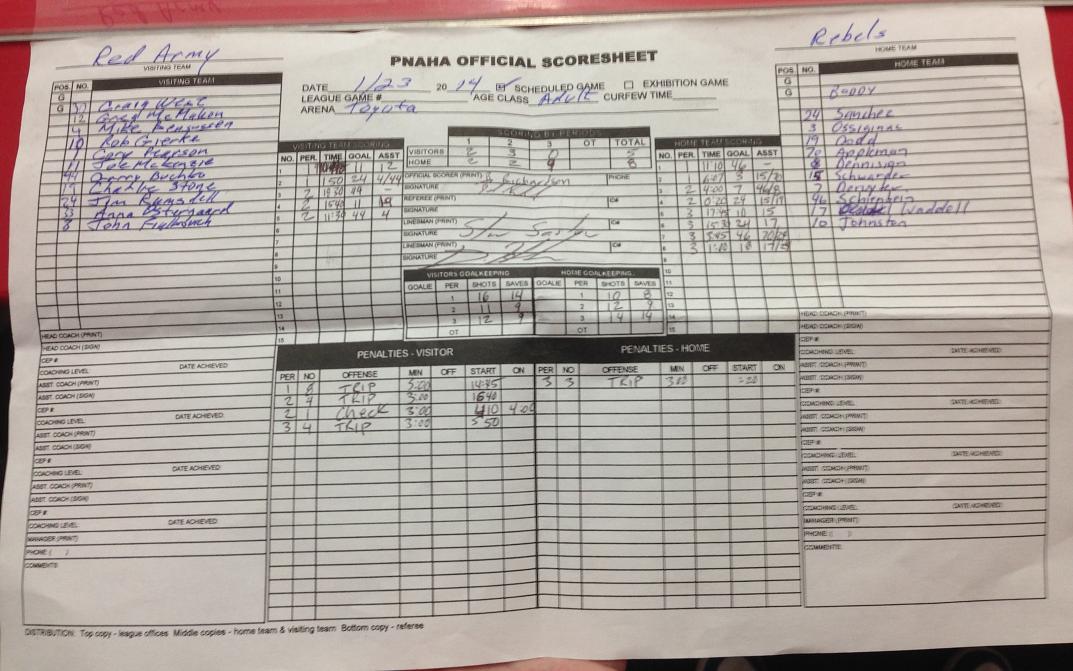 Red Army
VISITING TEAM
Rebels
HOME TEAM
PNAHA OFFICIAL SCORESHEET
DATE 1/23 2014 SCHEDULED GAME EXHIBITION GAME
LEAGUE GAME # AGE CLASS Adult CURFEW TIME
ARENA Toyota
POS. NO. VISITING TEAM
G
G Craig West
12 Greg McMahon
4 Mike
10 Rob
Gary Pearson
11 Joe McKenzie
44 Garry Buchko
19 Charlie Stone
24 Jim Ramsdell
33 Anna Ostergaard
8 John
POS. NO. HOME TEAM
G
G BODDY
24 Sanchez
3 Ossiginac
19 Dodd
20 Appleman
8 Dennision
15 Schwarder
7 Denyker
46 Schienbein
17 Waddell
10 Johnston
SCORING BY PERIODS
1 2 3 OT TOTAL
VISITORS 2 3 0 5
HOME 2 2 4 8
OFFICIAL SCORER (PRINT) B Richardson PHONE
SIGNATURE
REFEREE (PRINT) IC#
SIGNATURE
LINESMAN (PRINT) IC#
SIGNATURE
LINESMAN (PRINT) IC#
SIGNATURE
VISITING TEAM SCORING
NO. PER. TIME GOAL ASST
1 1 11 2
2 1 :50 24 4/44
3 2 19:30 44 -
4 2 15:40 11 19
5 2 11:30 44 4
HOME TEAM SCORING
NO. PER. TIME GOAL ASST
1 1 11:10 46 -
2 1 6:07 3 15/20
3 2 4:00 7 46/8
4 2 0:20 24 15/19
5 3 17:45 10 15
6 3 15:30 24 17
7 3 3:45 46 20/24
8 3 1:10
VISITORS GOALKEEPING
GOALIE PER SHOTS SAVES
1 16 14
2 11 9
3 12 9
OT
HOME GOALKEEPING
GOALIE PER SHOTS SAVES
1 10 8
2 12 9
3 14 14
OT
PENALTIES - VISITOR
PER NO OFFENSE MIN OFF START ON
1 8 TRIP 3:00 14:45
2 4 TRIP 3:00 1640
2 1 Check 3:00 410 4:00
3 4 TRIP 3:00 550
PENALTIES - HOME
PER NO OFFENSE MIN OFF START ON
3 3 TRIP 3:00 :20
HEAD COACH (PRINT)
HEAD COACH (SIGN)
CEP #
COACHING LEVEL: DATE ACHIEVED:
ASST. COACH (PRINT)
ASST. COACH (SIGN)
CEP #
COACHING LEVEL: DATE ACHIEVED:
ASST. COACH (PRINT)
ASST. COACH (SIGN)
CEP #
COACHING LEVEL: DATE ACHIEVED:
ASST. COACH (PRINT)
ASST. COACH (SIGN)
CEP #
COACHING LEVEL: DATE ACHIEVED:
MANAGER (PRINT)
PHONE ( )
COMMENTS:
HEAD COACH (PRINT)
HEAD COACH (SIGN)
CEP #
COACHING LEVEL: DATE ACHIEVED:
ASST. COACH (PRINT)
ASST. COACH (SIGN)
CEP #
COACHING LEVEL: DATE ACHIEVED:
ASST. COACH (PRINT)
ASST. COACH (SIGN)
CEP #
COACHING LEVEL: DATE ACHIEVED:
ASST. COACH (PRINT)
ASST. COACH (SIGN)
CEP #
COACHING LEVEL: DATE ACHIEVED:
MANAGER (PRINT)
PHONE ( )
COMMENTS:
DISTRIBUTION: Top copy - league offices Middle copies - home team & visiting team Bottom copy - referee